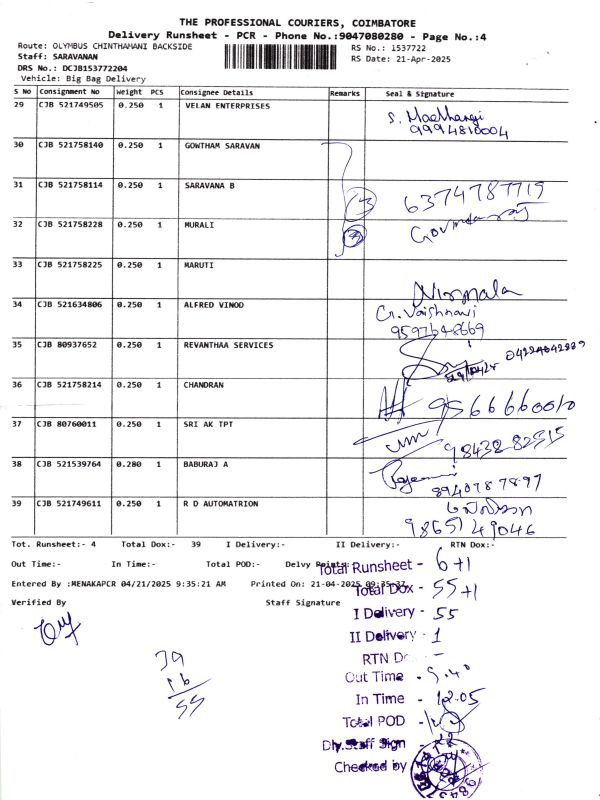 THE PROFESSIONAL COURIERS, COIMBATORE
Delivery Runsheet - PCR - Phone No.:9047080280 - Page No.:4
Route: OLYMBUS CHINTHAMANI BACKSIDE
RS No.: 1537722
Staff: SARAVANAN
RS Date: 21-Apr-2025
DRS No.: DCJB153772204
Vehicle: Big Bag Delivery
S No Consignment No Weight PCS Consignee Details Remarks Seal & Signature
29 CJB 521749505 0.250 1 VELAN ENTERPRISES
9994810004
30 CJB 521758140 0.250 1 GOWTHAM SARAVAN
31 CJB 521758114 0.250 1 SARAVANA B
6374787719
32 CJB 521758228 0.250 1 MURALI
Govindaraj
33 CJB 521758225 0.250 1 MARUTI
Nirmala
34 CJB 521634806 0.250 1 ALFRED VINOD
G. Vaishnavi
9597648669
35 CJB 80937652 0.250 1 REVANTHAA SERVICES
36 CJB 521758214 0.250 1 CHANDRAN
9566660010
37 CJB 80760011 0.250 1 SRI AK TPT
9843282515
38 CJB 521539764 0.280 1 BABURAJ A
8940787897
39 CJB 521749611 0.250 1 R D AUTOMATRION
9865149046
Tot. Runsheet:- 4 Total Dox:- 39 I Delivery:- II Delivery:- RTN Dox:-
Out Time :- In Time:- Total POD:- Delvy Points:-
Entered By :MENAKAPCR 04/21/2025 9:35:21 AM Printed On: 21-04-2025 09:35:37
Verified By Staff Signature
Total Runsheet - 6+1
Total Dox - 55+1
I Delivery - 55
II Delivery - 1
RTN Do -
Out Time - 9.40
In Time - 12.05
Total POD -
Dly.Staff Sign -
Checked by
39
16
55